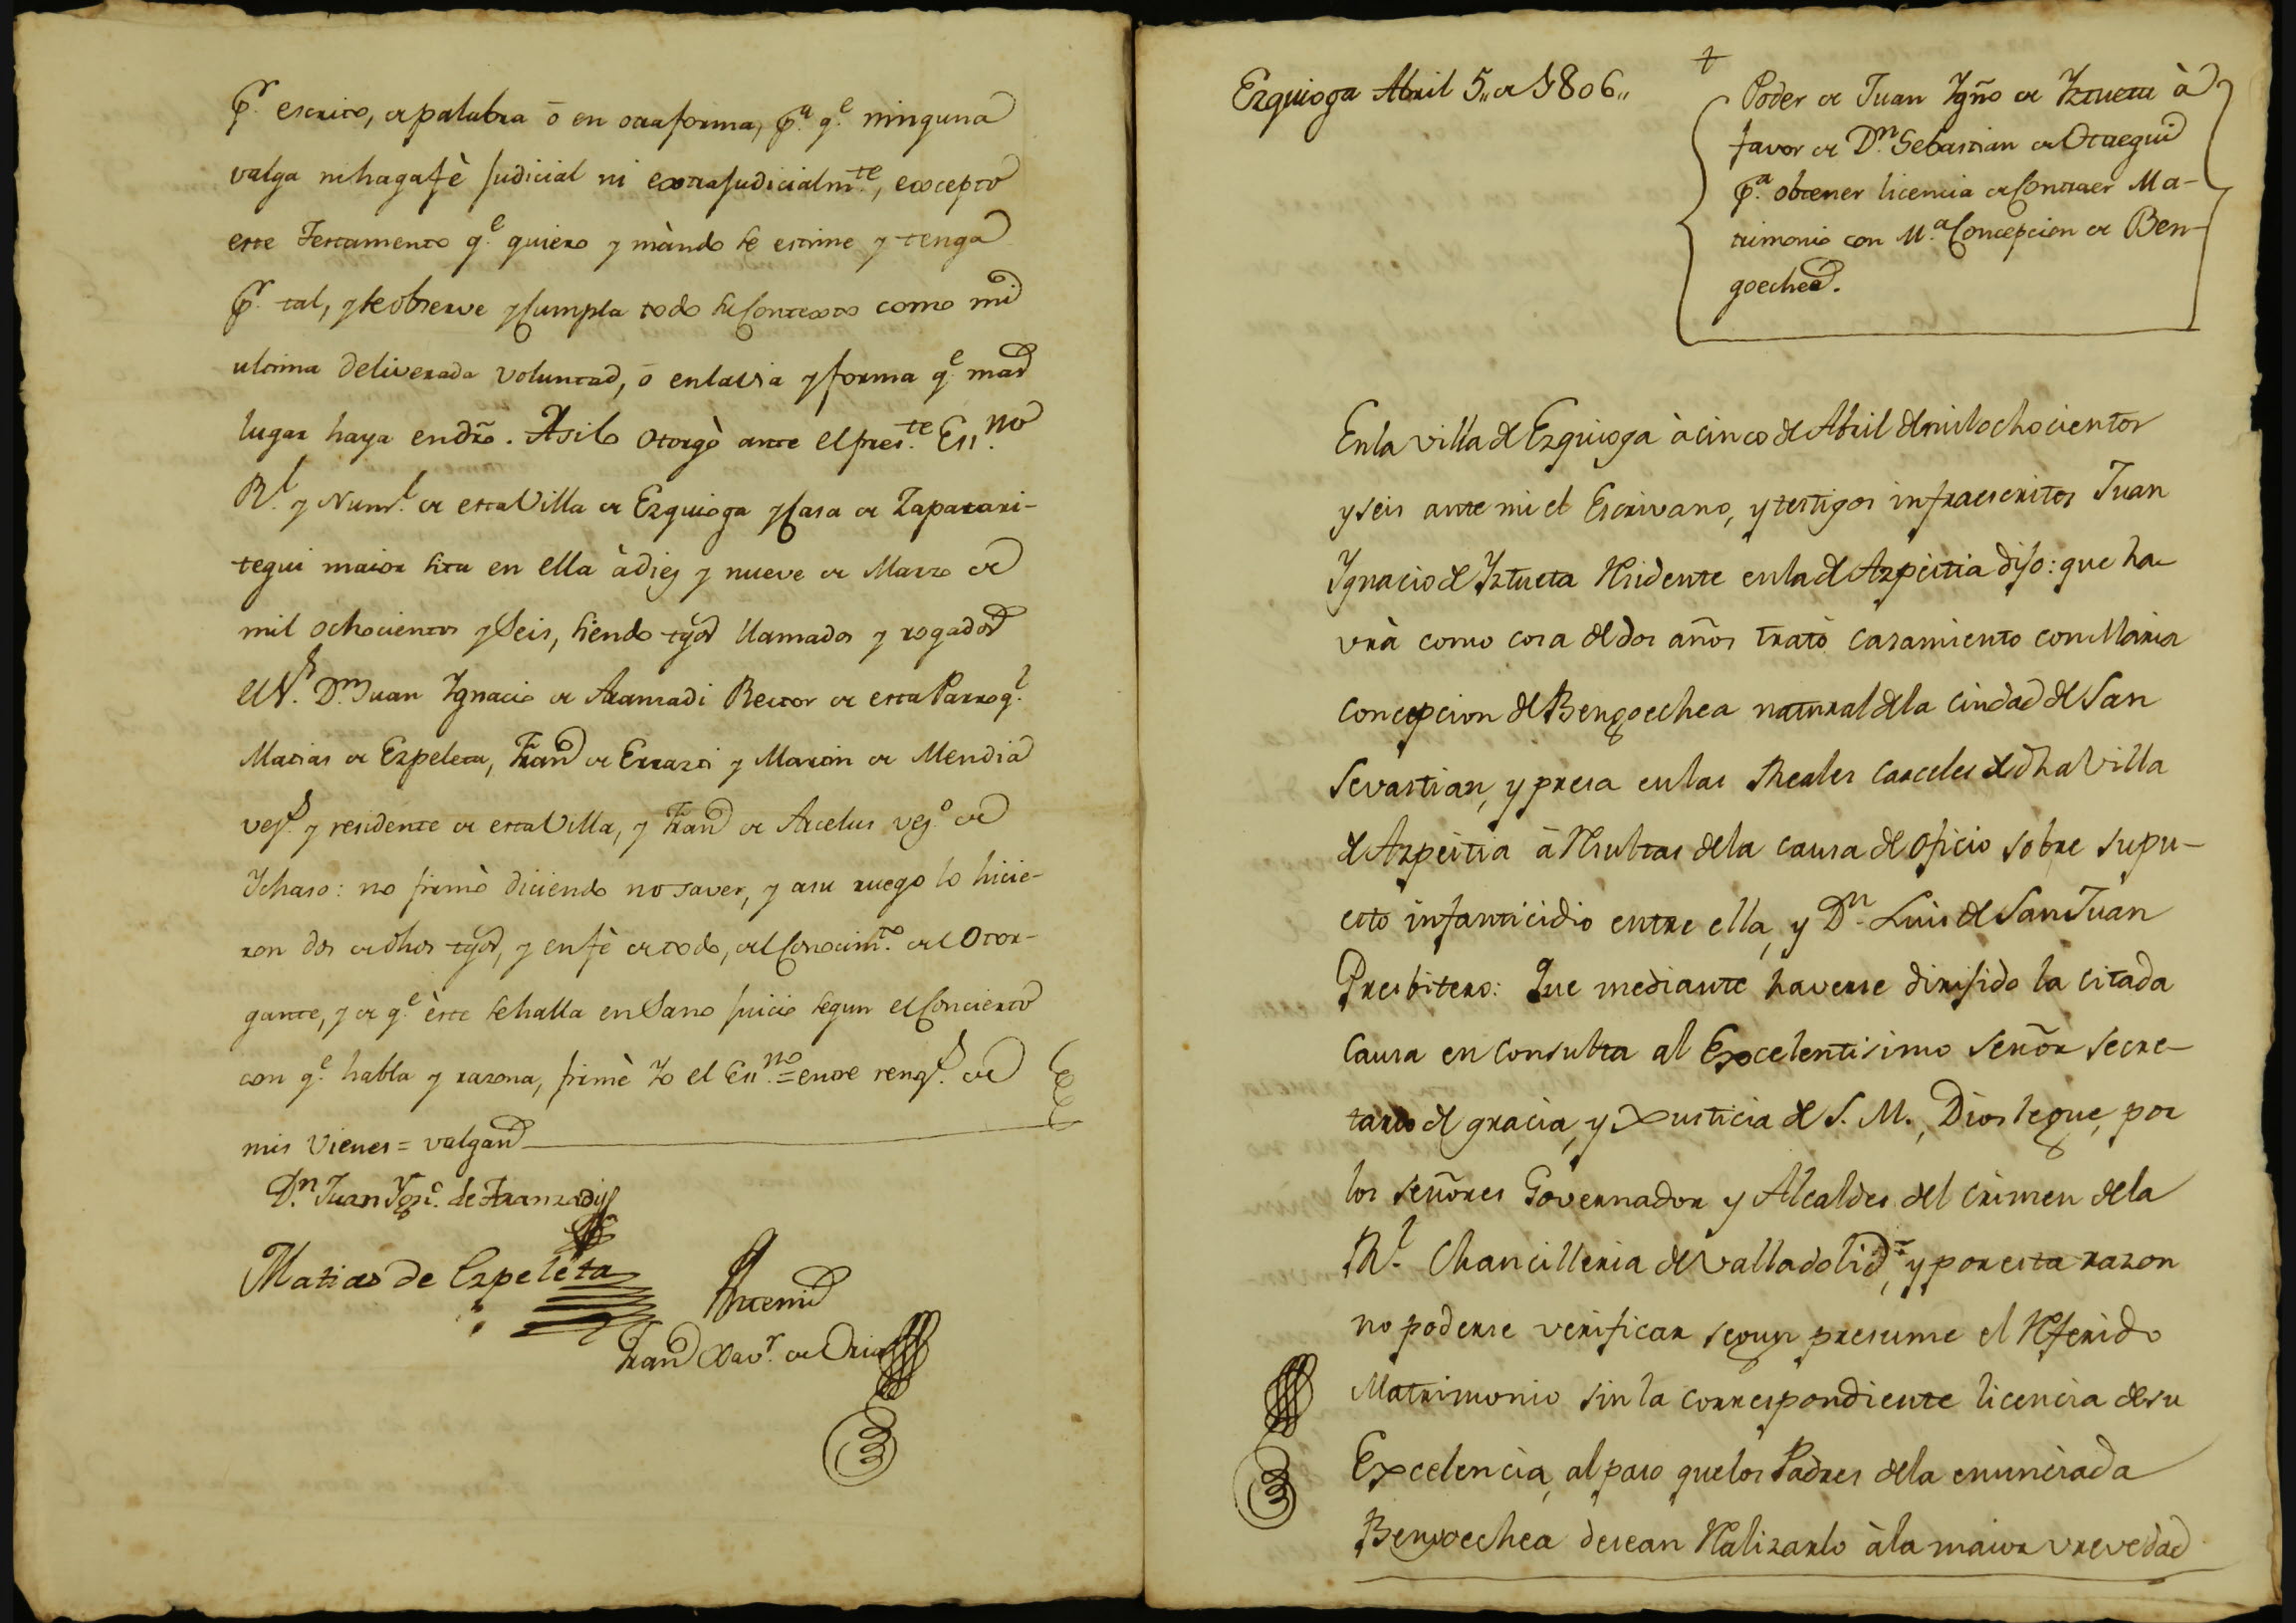 pr. escrito, de palabra ō en otra forma, pa. qe. ninguna
valga ni haga fè judicial ni extrajudicialmte., excepto
este Testamento qe. quiero y màndo se estime y tenga
pr. tal, y se observe y cumpla todo su contexto como mi
ultima deliverada voluntad, ō en la via y forma qe. mas
lugar haya en dro. Asi lo otorgò ante el preste. Essno.
Rl. y Numl. de esta Villa de Ezquioga y Casa de Zaparari-
tegui maior sita en ella à diez y nueve de Marzo de
mil ochocientos y Seis, siendo tgos llamados y rogados
el Sr. Dn. Juan Ygnacio de Aramzadi Rector de esta Parroql.
Matias de Ezpeleta, Franco de Errazti y Martin de Mendia
vezs. y residente de esta Villa, y Franco de Arcelus vezo. de
Ychaso: no firmò diciendo no saver, y a su ruego lo hicie-
ron dos de dhos tgos, y en fè de todo, del conocimto. del Otor-
gante, y de qe. èste se halla en Sano juicio segun el concierto
con qe. habla y razona, firmè Yo el Essno. = entre rengs. de
mis vienes = valgan
Dn. Juan Ygnco. de Aranzadi
Matias de Ezpeleta
Ante mi
Franco Xavr. de Oria
Ezquioga Abril 5,, de 1806,,
Poder de Juan Ygño de Yztueta à
favor de Dn. Sebastian de Otaegui
pa. obtener licencia de contraer Ma-
trimonio con Ma. Concepcion de Ben-
goechea.
En la villa de Ezquioga à cinco de Abril de mil ochocientos
y seis ante mi el Escrivano, y testigos infraescritos Juan
Ygnacio de Yztueta Residente en la de Azpeitia dijo: que ha-
vrà como cosa de dos años trato casamiento con Maria
Concepcion de Bengoechea natural de la ciudad de San
Sevastian, y presa en las Reales carceles de dha Villa
de Azpeitia à Resultas de la causa de oficio sobre supu-
esto infanticidio entre ella, y Dn. Luis de San Juan
Presbitero: Que mediante haverse dirijido la citada
causa en consulta al Excelentisimo señor secre-
tario de gracia, y Justicia de S. M., Dios le gue, por
los señores Governador y Alcaldes del crimen de la
Rl. Chancilleria de Valladolid, y por esta razon
no poderse verificar segun presume el Referido
Matrimonio sin la correspondiente licencia de su
Excelencia, al paso que los Padres de la enunciada
Bengoechea desean Realizarlo à la maior vrevedad